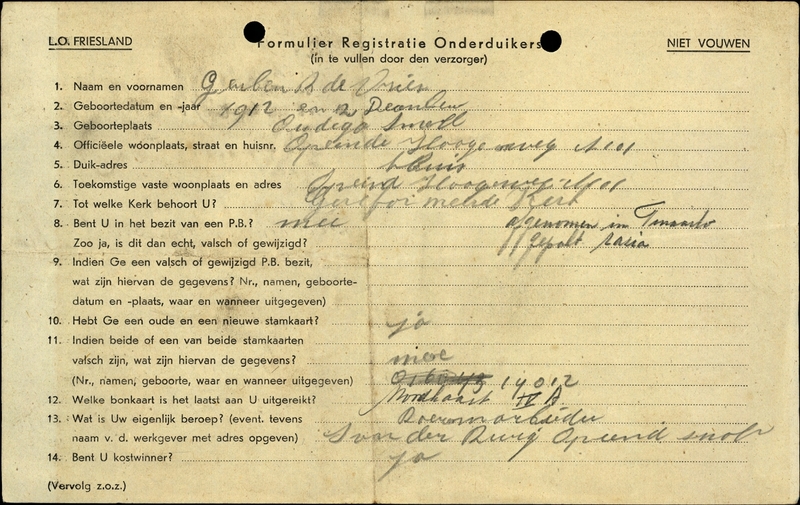 L.O. FRIESLAND
Formulier Registratie Onderduikers
NIET VOUWEN
(in te vullen door den verzorger)
1. Naam en voornamen Gerben R de Vries
2. Geboortedatum en -jaar 1912 en 12 December
3. Geboorteplaats Oudega Small
4. Officiëele woonplaats, straat en huisnr. Opeinde Hooge weg
5. Duik-adres thuis
6. Toekomstige vaste woonplaats en adres
7. Tot welke Kerk behoort U? Kerk
8. Bent U in het bezit van een P.B.? nee afgenomen in
Zoo ja, is dit dan echt, valsch of gewijzigd? razia
9. Indien Ge een valsch of gewijzigd P.B. bezit,
wat zijn hiervan de gegevens? Nr., namen, geboorte-
datum en -plaats, waar en wanneer uitgegeven)
10. Hebt Ge een oude en een nieuwe stamkaart? ja
11. Indien beide of een van beide stamkaarten
valsch zijn, wat zijn hiervan de gegevens? nee
(Nr., namen, geboorte, waar en wanneer uitgegeven)
12. Welke bonkaart is het laatst aan U uitgereikt? Noodkaart IV A
13. Wat is Uw eigenlijk beroep? (event. tevens Boerenarbeider
naam v. d. werkgever met adres opgeven) S van der
14. Bent U kostwinner? ja
(Vervolg z.o.z.)